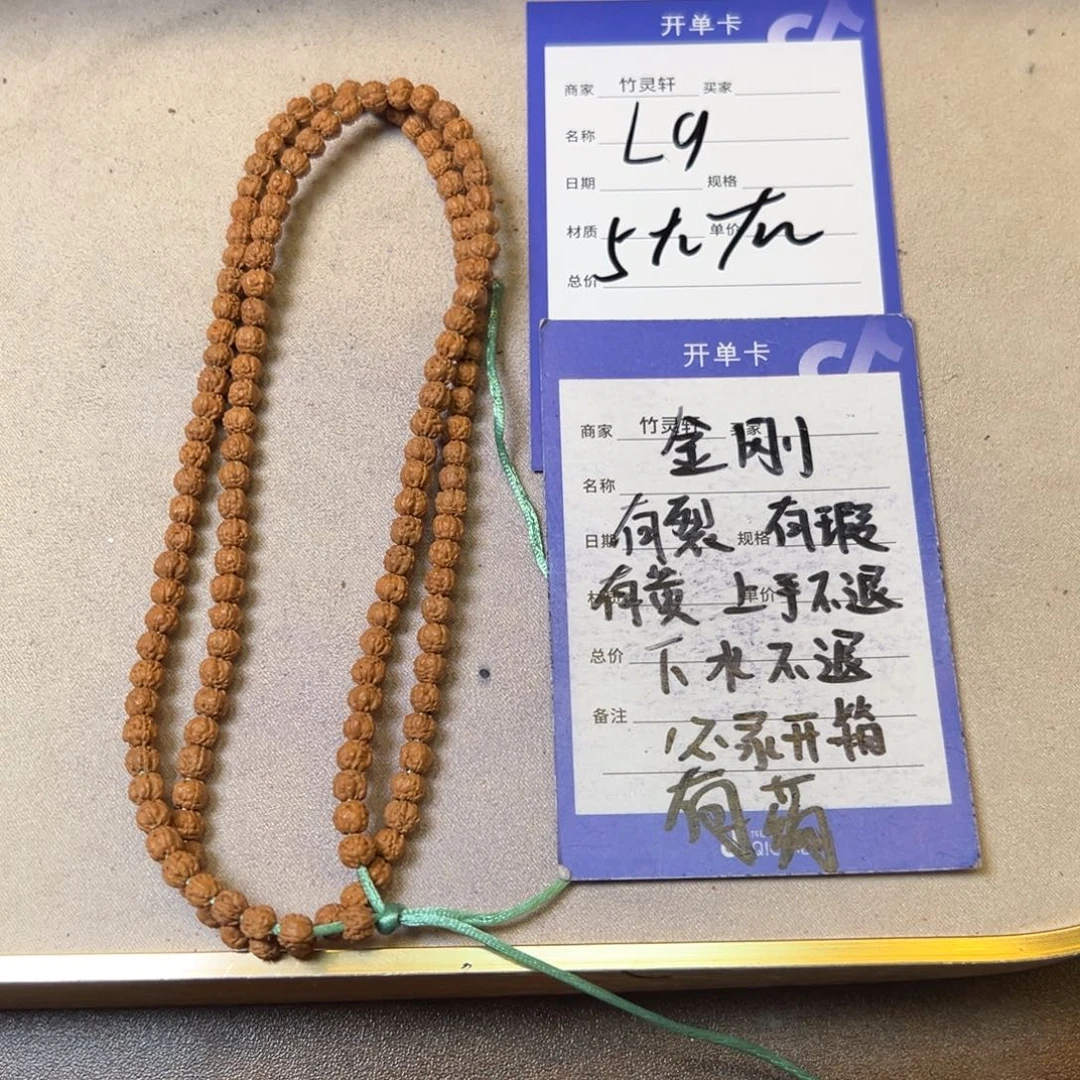 开单卡
商家 竹灵轩 买家
名称 L9
日期 规格
材质 单价
总价
开单卡
商家 竹灵轩
金刚
名称
日期 规格
有裂 有瑕
单价
有黄 上手不退
总价 下水不退
备注
必录开箱
有药